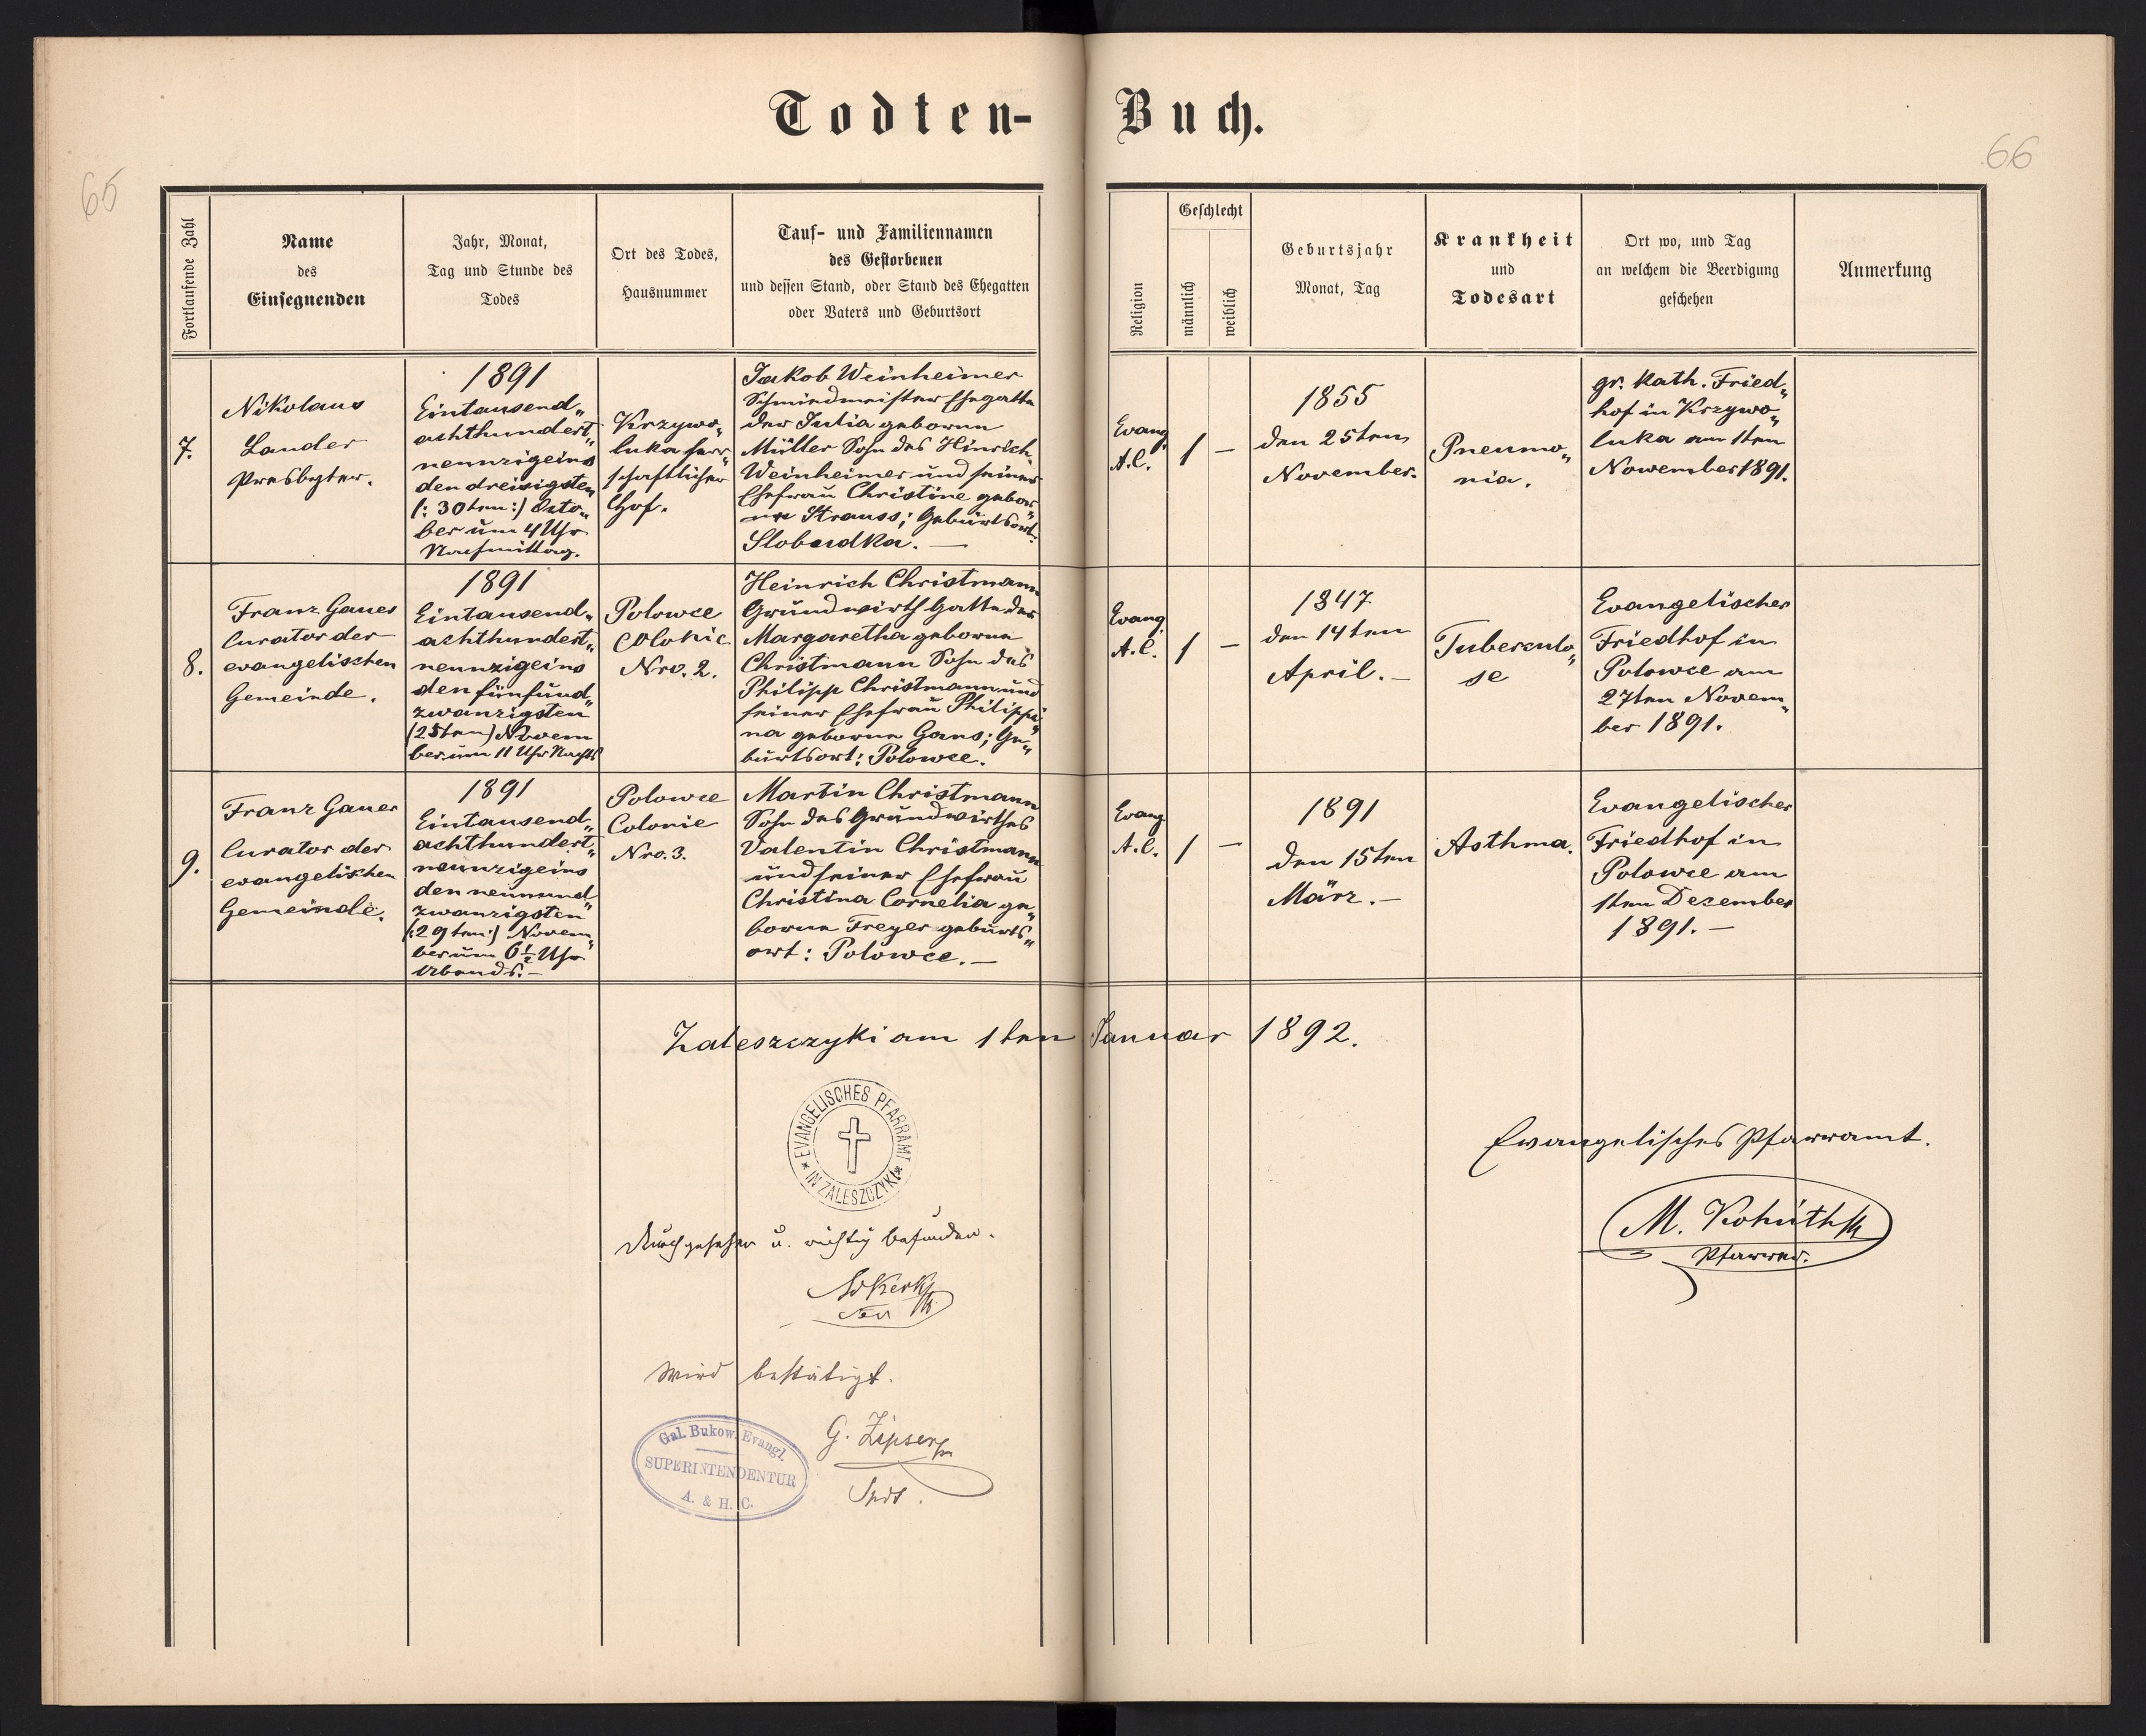 Todten-Buch.
65
66
Fortlaufende Zahl
Name
des
Einsegnenden
Jahr, Monat,
Tag und Stunde des
Todes
Ort des Todes,
Hausnummer
Tauf- und Familiennamen
des Gestorbenen
und dessen Stand, oder Stand des Ehegatten
oder Vaters und Geburtsort
Religion
Geschlecht
männlich
weiblich
Geburtsjahr
Monat, Tag
Krankheit
und
Todesart
Ort wo, und Tag
an welchem die Beerdigung
geschehen
Anmerkung
7.
Nikolaus
Lander
Presbyter.
1891
Eintausend„
achthundert„
neunzigeins
den dreisigsten
(: 30ten :) Octo„
ber um 4 Uhr
Nachmittag.
Krzywo„
luka herr„
schaftlicher
Hof.
Jakob Weinheimer
Schmiedmeister Ehegatte
der Julia geborne
Müller Sohn des Hinrich
Weinheimer und seiner
Ehefrau Christine gebor„
ne Strauss; Geburtsort:
Slobudka. —
Evang.
A.C.
1
—
1855
den 25ten
November.
Pneumo„
nia.
gr. kath. Fried„
hof in Krzywo„
luka am 1ten
Nowember 1891.
8.
Franz Gaues
Curator der
evangelischen
Gemeinde.
1891
Eintausend„
achthundert„
neunzigeins
den fünfund„
zwanzigsten
(25ten) Novem
ber um 11 Uhr Nachts
Polowce
Colonie
Nro. 2.
Heinrich Christmann
Grundwirth Gatte der
Margaretha geborne
Christmann Sohn des
Philipp Christmann und
seiner Ehefrau Philippi„
na geborne Gans; Ge„
burtsort: Polowce.
Evang.
A.C.
1
—
1847
den 14ten
April. —
Tuberculo„
se
Evangelischer
Friedhof in
Polowce am
27ten Novem„
ber 1891.
9.
Franz Gauer
Curator der
evangelischen
Gemeinde.
1891
Eintausend„
achthundert„
neunzigeins
den neunund„
zwanzigsten
(: 29ten :) Novem„
ber um 6½ Uhr
Abends. —
Polowce
Colonie
Nro. 3.
Martin Christmann
Sohn des Grundwirthes
Valentin Christmann
und seiner Ehefrau
Christina Cornelia ge„
borne Freyer geburts„
ort: Polowce. —
Evang.
A.C.
1
—
1891
den 15ten
März. —
Asthma.
Evangelischer
Friedhof in
Polowce am
1ten Dezember
1891. —
Zaleszczyki am 1ten Januar 1892.
* EVANGELISCHES PFARRAMT *
IN ZALESZCZYKI
Evangelisches Pfarramt.
M. Kohuth
Pfarrer.
Durchgesehen u. richtig befunden.
Wird bestätigt.
Gal. Bukow. Evangl.
SUPERINTENDENTUR
A. & H. C.
G. Zipser
Supt.